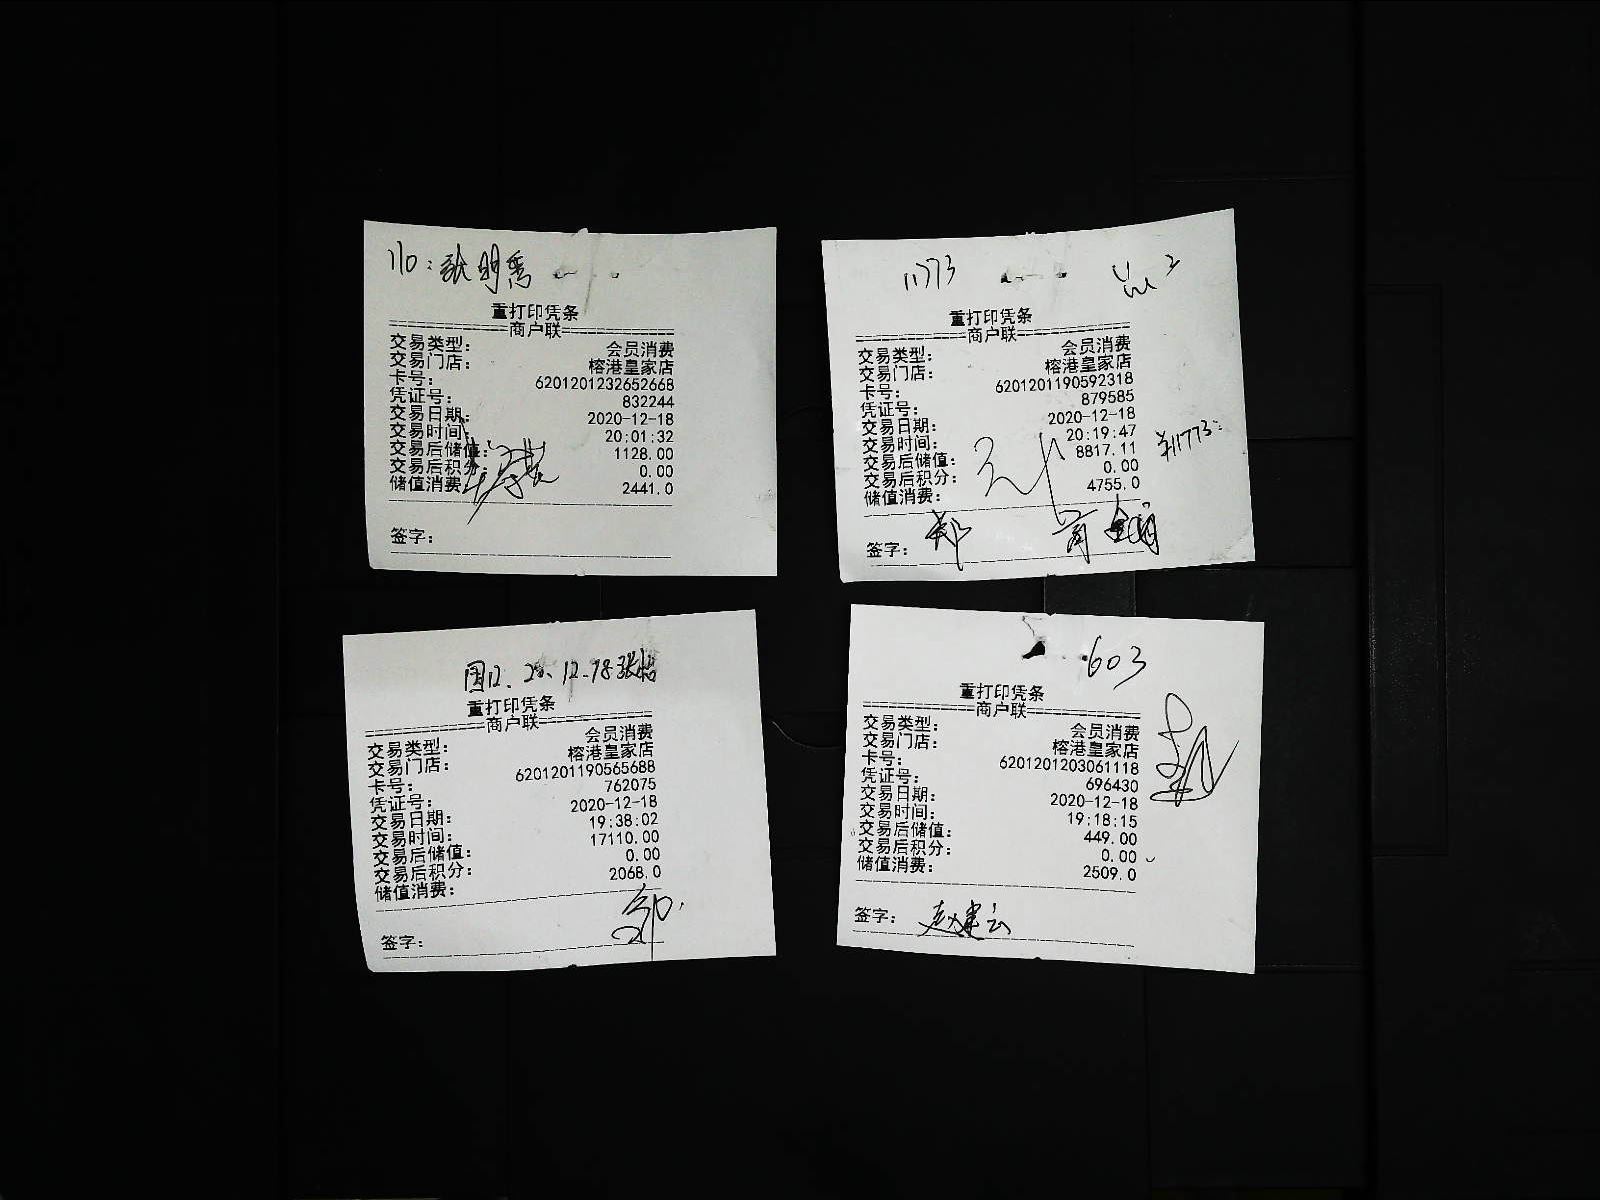 110:张明秀
重打印凭条
商户联
交易类型: 会员消费
交易门店: 榕港皇家店
卡号: 6201201232652668
凭证号: 832244
交易日期: 2020-12-18
交易时间: 20:01:32
交易后储值: 1128.00
交易后积分: 0.00
储值消费: 2441.0
签字:
11773
重打印凭条
商户联
交易类型: 会员消费
交易门店: 榕港皇家店
卡号: 6201201190592318
凭证号: 879585
交易日期: 2020-12-18
交易时间: 20:19:47
交易后储值: 8817.11
交易后积分: 0.00
储值消费: 4755.0
签字:
重打印凭条
商户联
交易类型: 会员消费
交易门店: 榕港皇家店
卡号: 6201201190565688
凭证号: 762075
交易日期: 2020-12-18
交易时间: 19:38:02
交易后储值: 17110.00
交易后积分: 0.00
储值消费: 2068.0
签字:
603
重打印凭条
商户联
交易类型: 会员消费
交易门店: 榕港皇家店
卡号: 6201201203061118
凭证号: 696430
交易日期: 2020-12-18
交易时间: 19:18:15
交易后储值: 449.00
交易后积分: 0.00
储值消费: 2509.0
签字: 赵建云